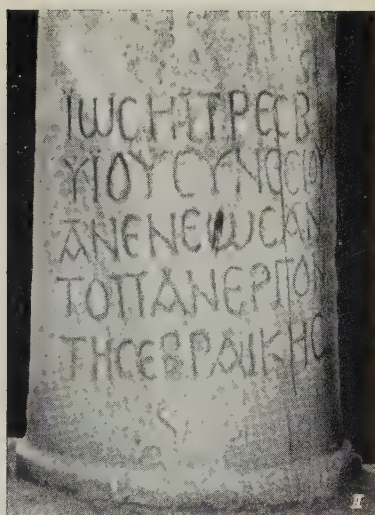 ΙωϹΗΠΡΕϹΒ
ΥΙΟΥϹΥΝΕϹΙΟΥ
ΑΝΕΝΕωϹΑΝ
ΤΟΠΑΝΕΡΓΟΝ
ΤΗϹΕΒΡΑΙΚΗϹ